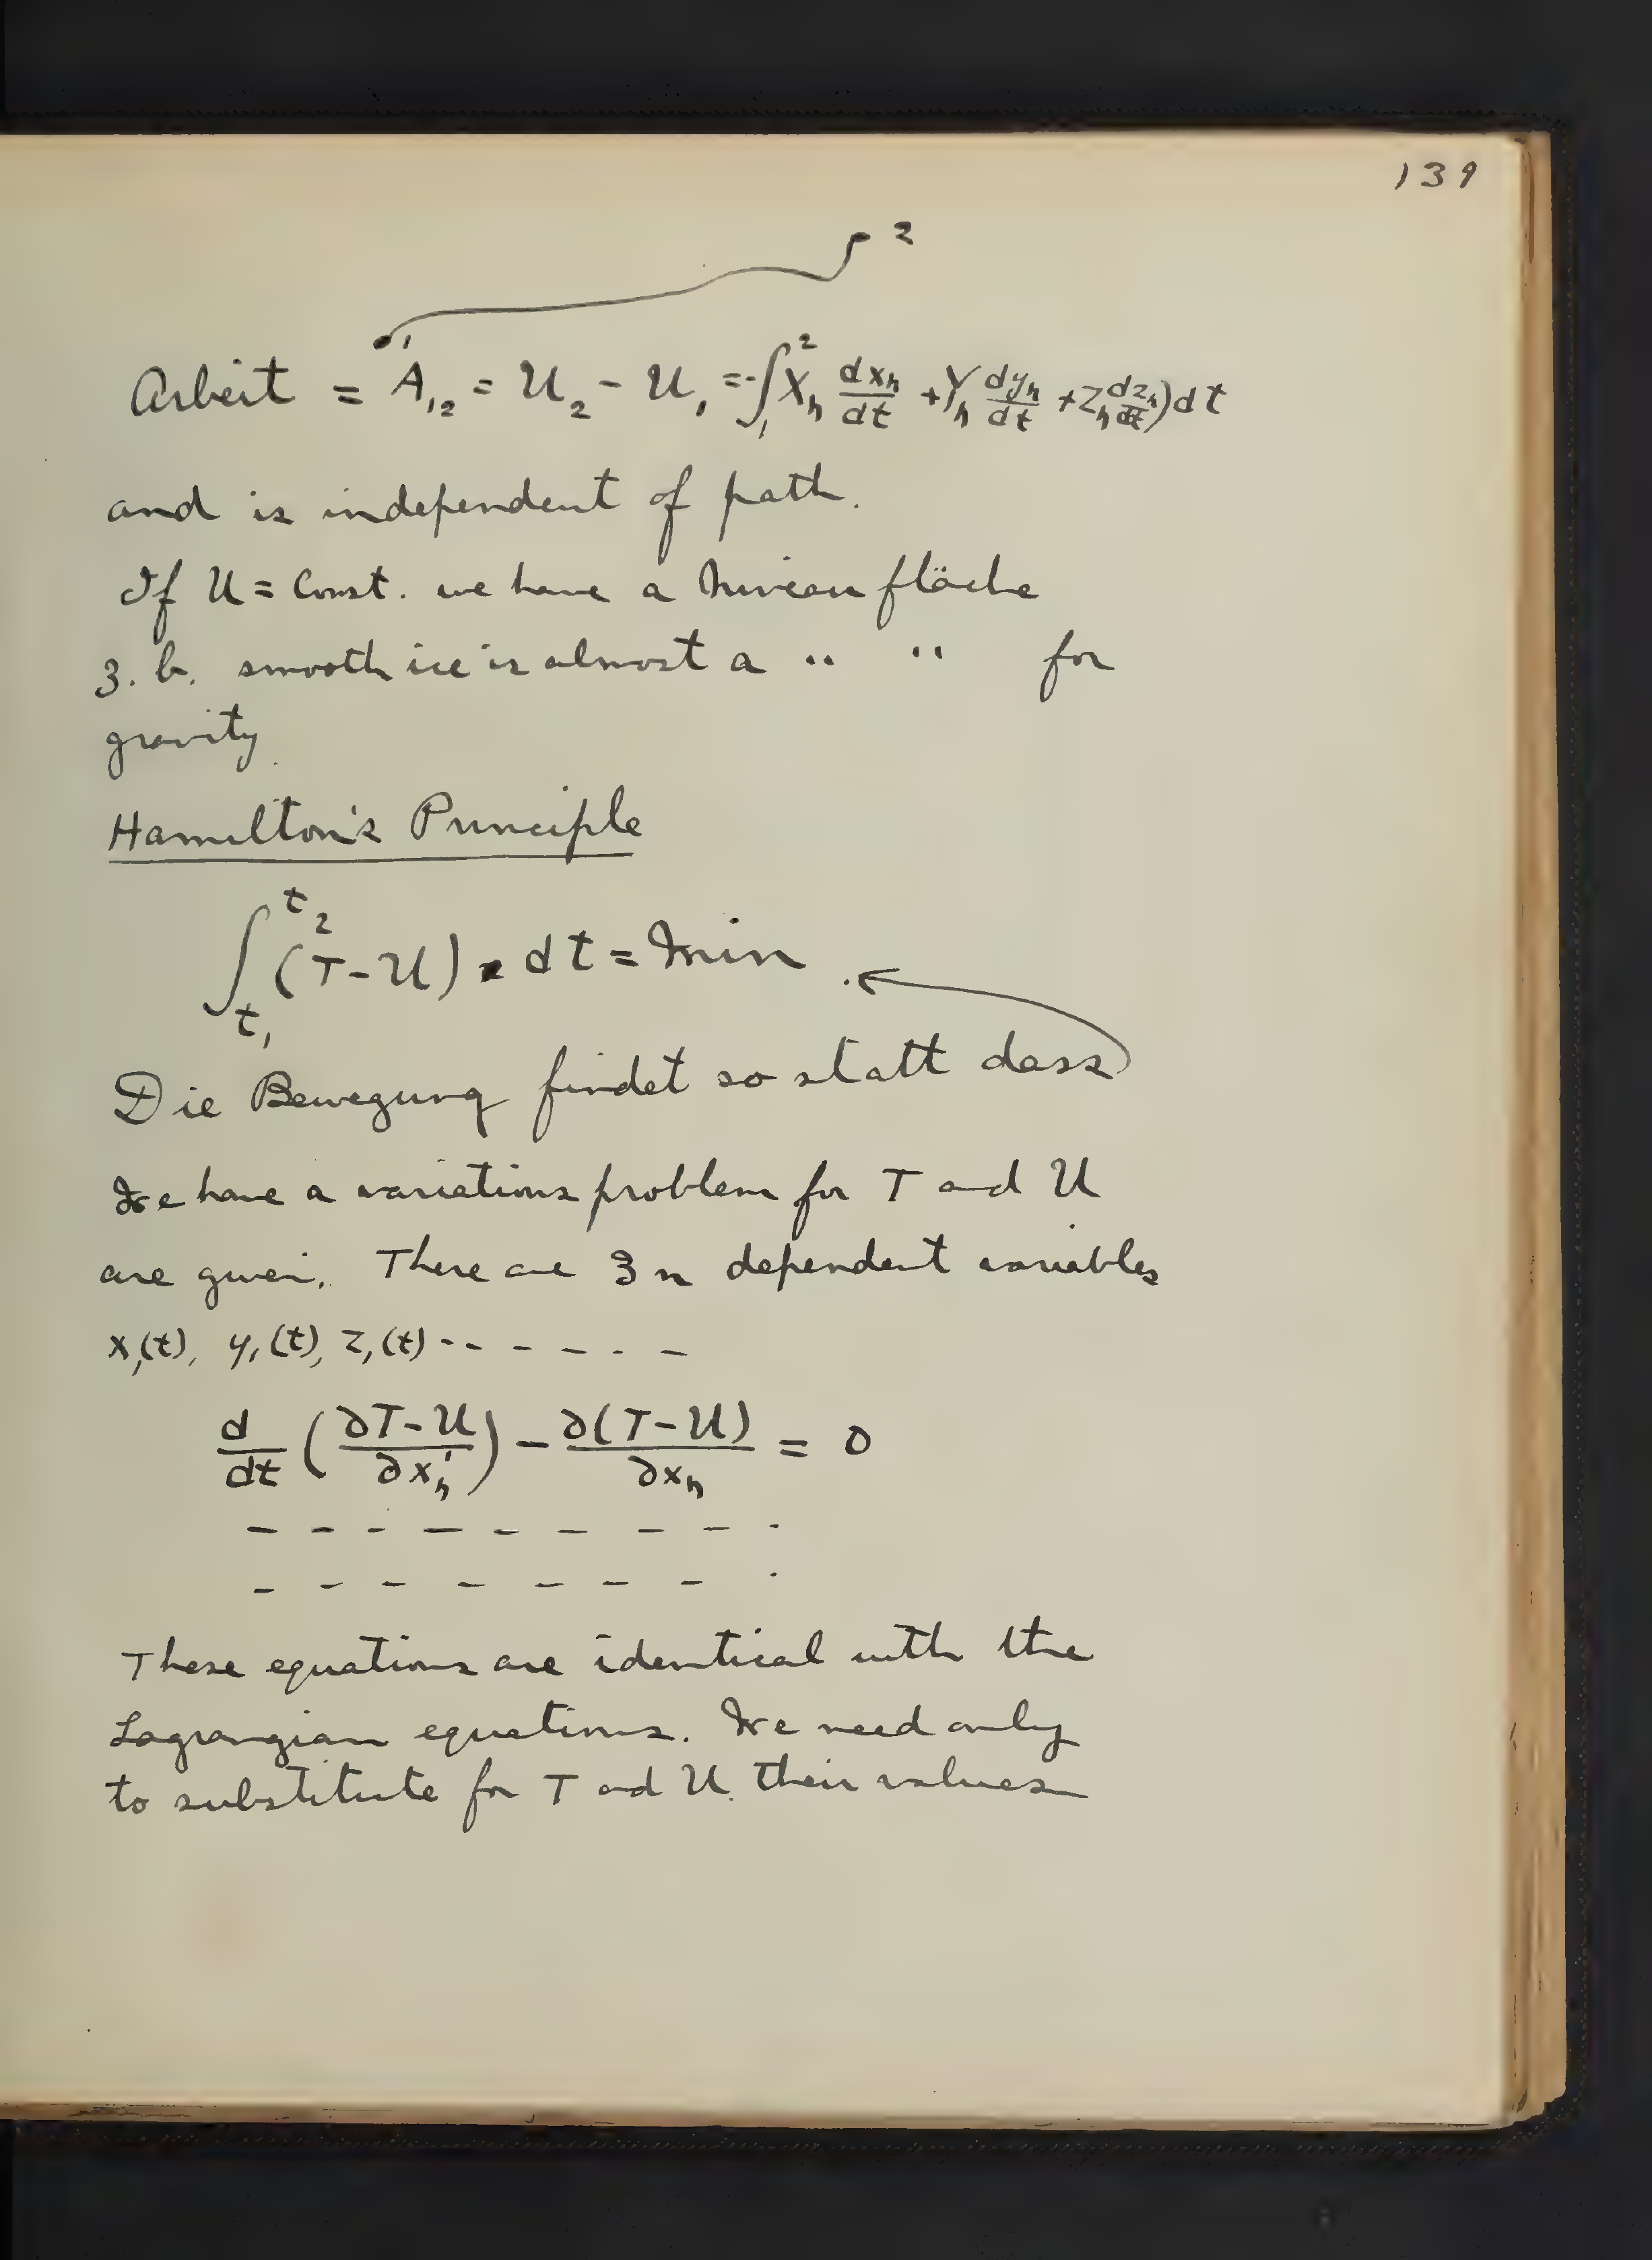 139
2
1
Arbeit = A₁₂ = U₂ - U₁ = -∫₁² Xₕ dxₕ/dt + Yₕ dyₕ/dt + Zₕ dzₕ/dt) dt
and is independent of path.
If U = Const. we have a Niveaufläche
z. b. smooth ice is almost a " " for
gravity.
Hamilton's Principle
∫_{t₁}^{t₂} (T-U) dt = Min.
Die Bewegung findet so statt dass
We have a variations problem for T and U
are given. There are 3n dependent variables
x₁(t), y₁(t), z₁(t) - - - - - -
d/dt (∂T-U/∂xₕ') - ∂(T-U)/∂xₕ = 0
- - - - - - - - -
- - - - - - - - -
These equations are identical with the
Lagrangian equations. We need only
to substitute for T and U their values